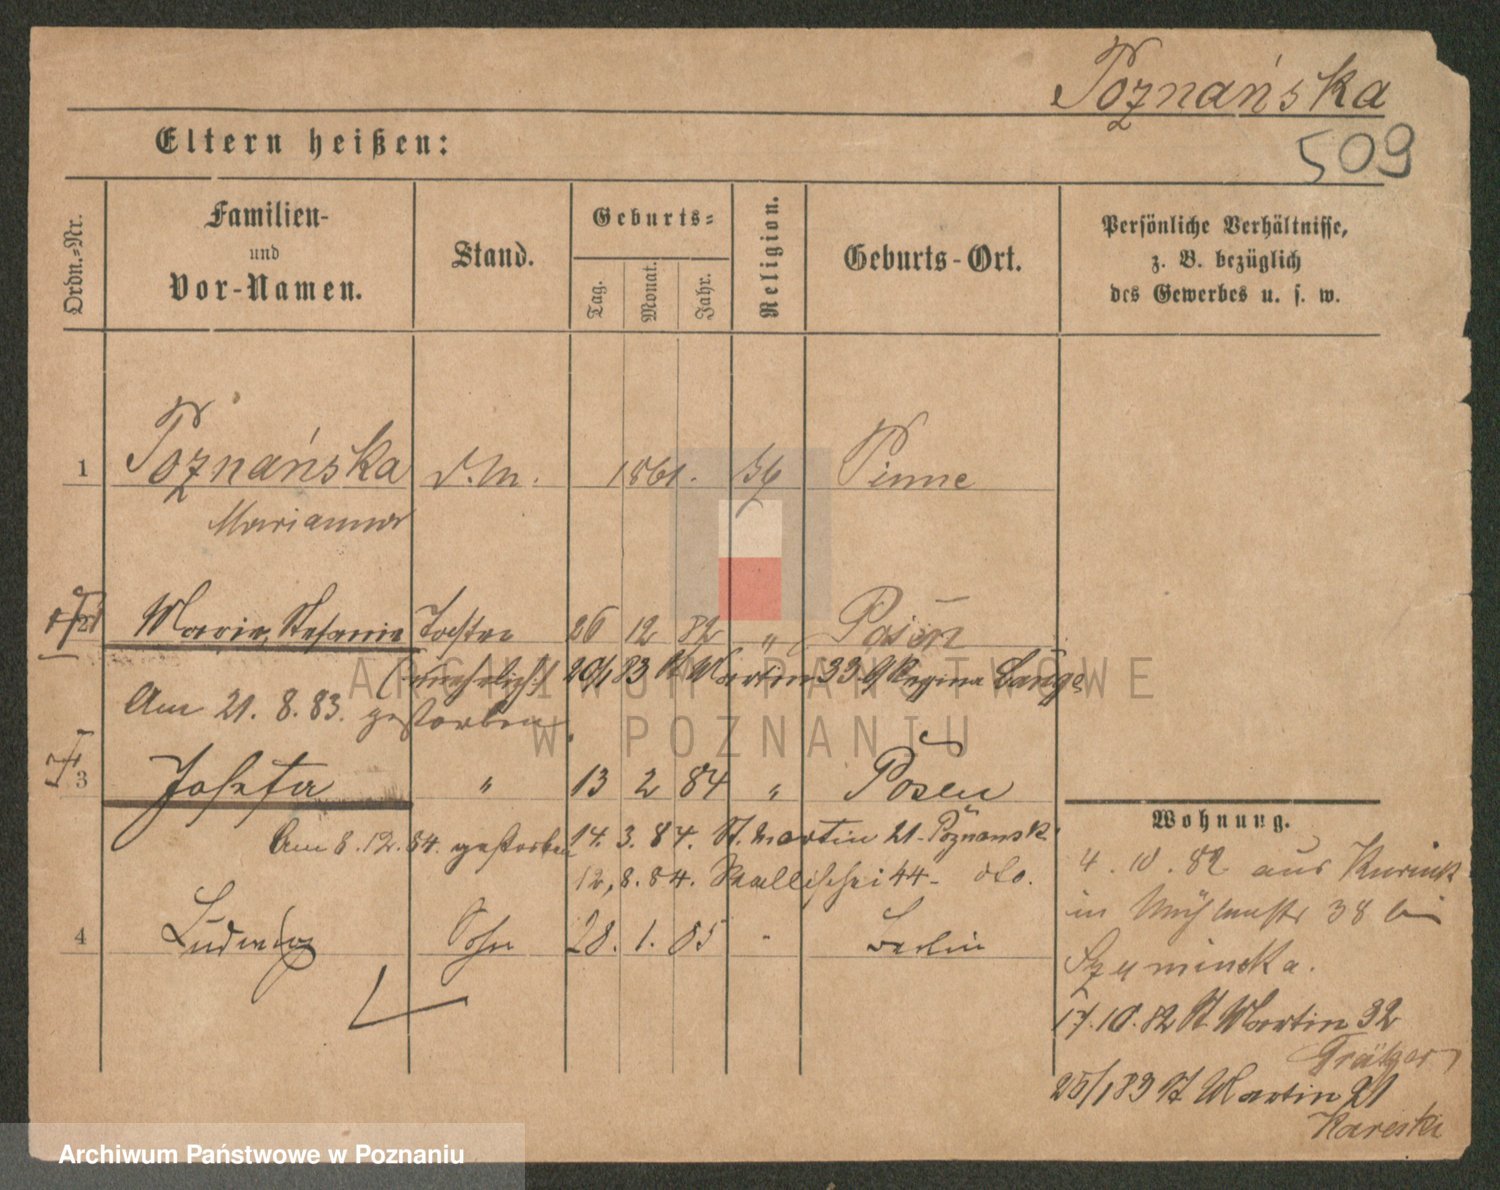 Poznańska
509
Eltern heißen:
Ordn.-Nr.
Familien-
und
Vor-Namen.
Stand.
Geburts-
Tag.
Monat.
Jahr.
Religion.
Geburts-Ort.
Persönliche Verhältnisse,
z. B. bezüglich
des Gewerbes u. s. w.
1 Poznańska d. M. 1861. Pinne
Marianna
2 Maria, Stefania Tochter 26 12 82 " Posen
(unehelich) 20/1 83 St Martin 33 Regina
Am 21. 8. 83. gestorben.
3 Josefa " 13 2 84 " Posen
Am 8. 12. 84. gestorben 14. 3. 84. St. Martin 21. Poznansk.
12, 8. 84. Wallischei 44 - dto.
4 Ludwig Sohn 28. 1. 85 - Berlin
Wohnung.
4. 10. 82 aus Kurnik
in Mühlenstr 38 bei
Szyminska.
17. 10. 82 St Martin 32
Grätzer
25/1 83 St Martin 21
Kareski
ARCHIWUM PAŃSTWOWE
W POZNANIU
Archiwum Państwowe w Poznaniu